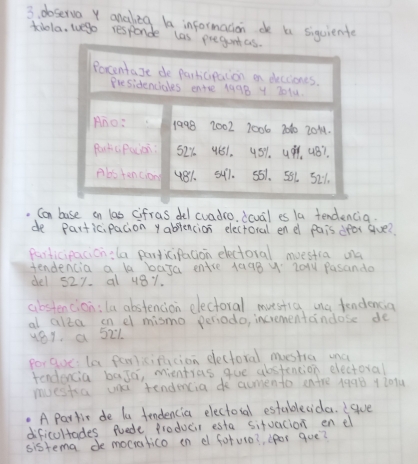 3. observa y analiza la información de la siguiente
tabla. luego responde las preguntas.
Porcentaje de Participación en elecciones.
Presidenciales entre 1998 y 2014.
Año: 1998 2002 2006 2010 2014.
Participación 52% 46%. 45%. 49%. 48%.
Abstención 48%. 54%. 55%. 52%.
• Con base en las cifras del cuadro, ¿cuál es la tendencia.
de Participación y abstención electoral en el país ¿por qué?
Participación: la participación electoral muestra una
tendencia a la baja entre 1998 y 2014 Pasando
del 52%. al 48%.
abstención: la abstención electoral muestra una tendencia
al alza en el mismo periodo, incrementándose de
48%. a 52%
Porque: la participación electoral muestra una
tendencia baja, mientras que abstención electoral
muestra una tendencia de aumento entre 1998 y 2014
• A Partir de la tendencia electoral establecida. ¿que
dificultades Puede Producir esta situación en el
sistema democratico en el futuro?, ¿por que?